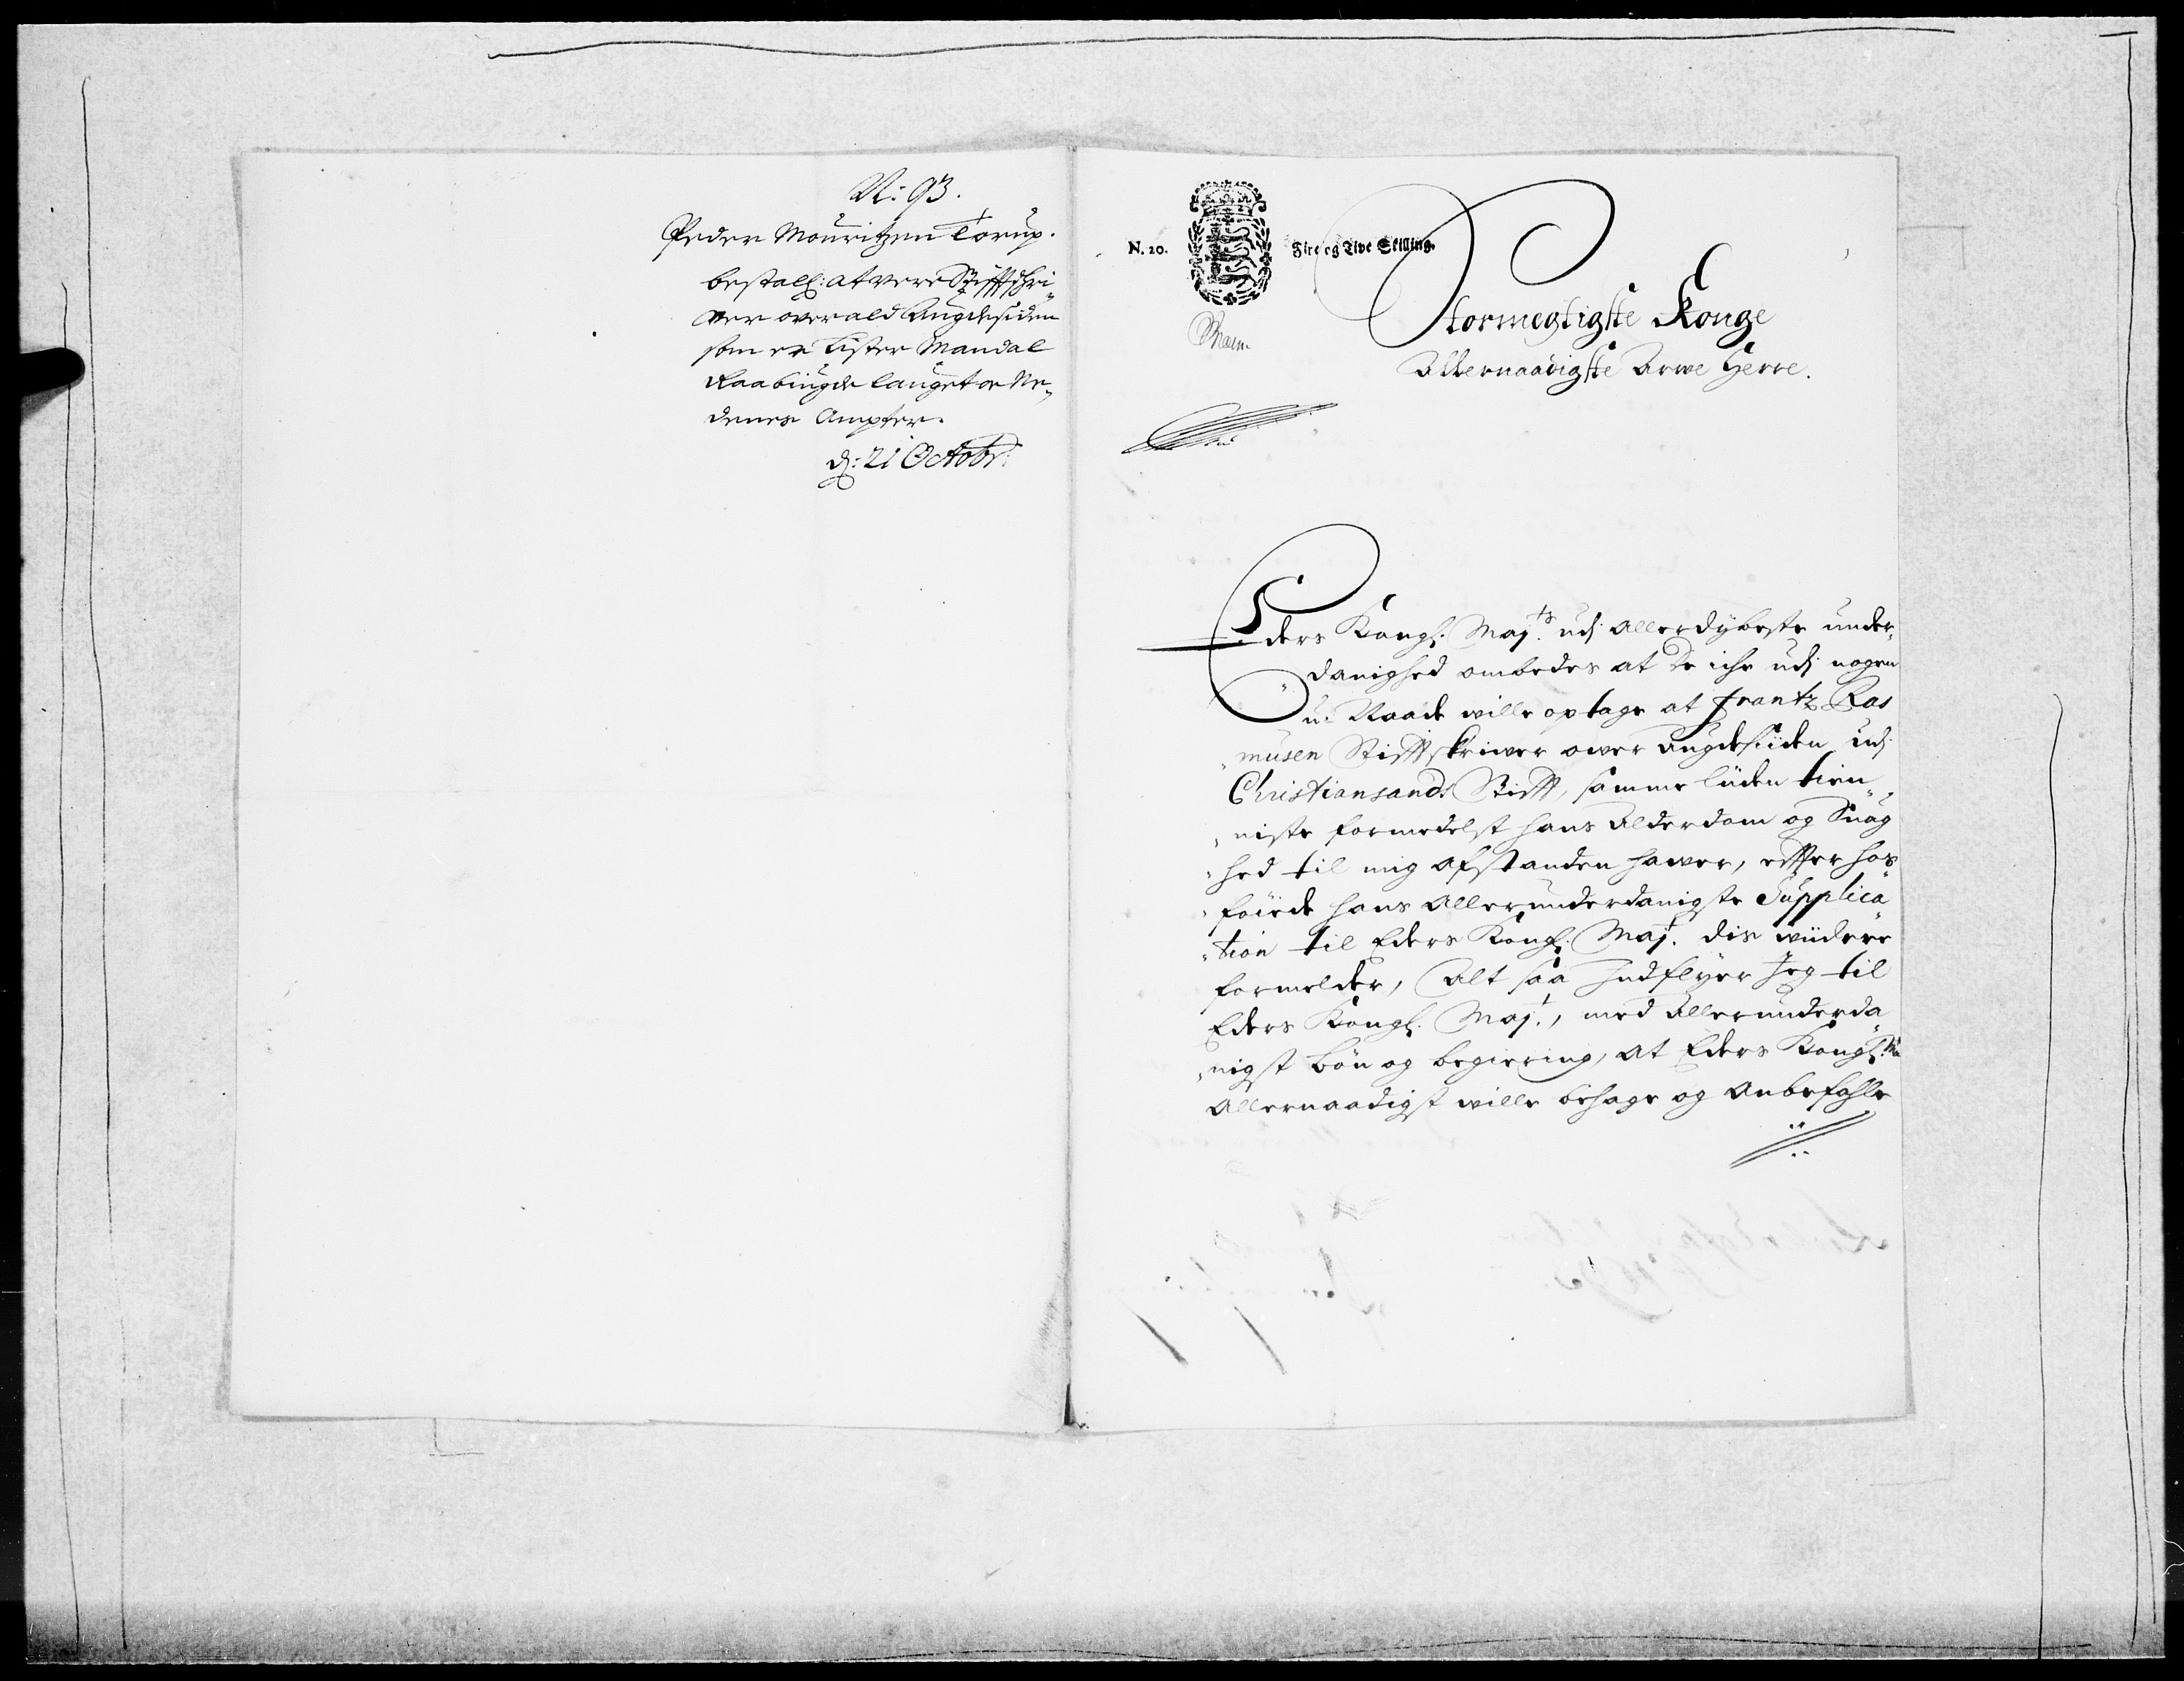 N: 93.
Peder Mouritzen Torup.
bestall: at være Stifftschri¬
ver over ald Augdesiden
som er Lister Mandal
Raabiugde lauget oc Ne¬
denes Ampter.
d: 21 Octobr:
N. 20.
Fire og Tive Skilling.
Stormegtigste Konge
Allernaadigste Arve Herre.
Eders Kongl: Maj:ts udj allerdybeste under¬
danighed ombedes at de iche udj nogen
u-Naade wille optage at Frantz Ras
musen Stifftskriwer ower Augdesiiden udj
Christiansands Stifft, samme liiden tien¬
niste formedelst hans Alderdom og Suag
hed til mig afstanden hawer, effter hos
föiede hans allerunderdanigste Supplica
tion til Eders Kongl: Maj:t dis wiidere
formelder, Alt saa Indflyer Jeg til
Eders Kongl: Maj:t, med allerunderda
nigst bön og begiering, at Eders Kongl: Ma
allernaadigst wille behage og anbefahle